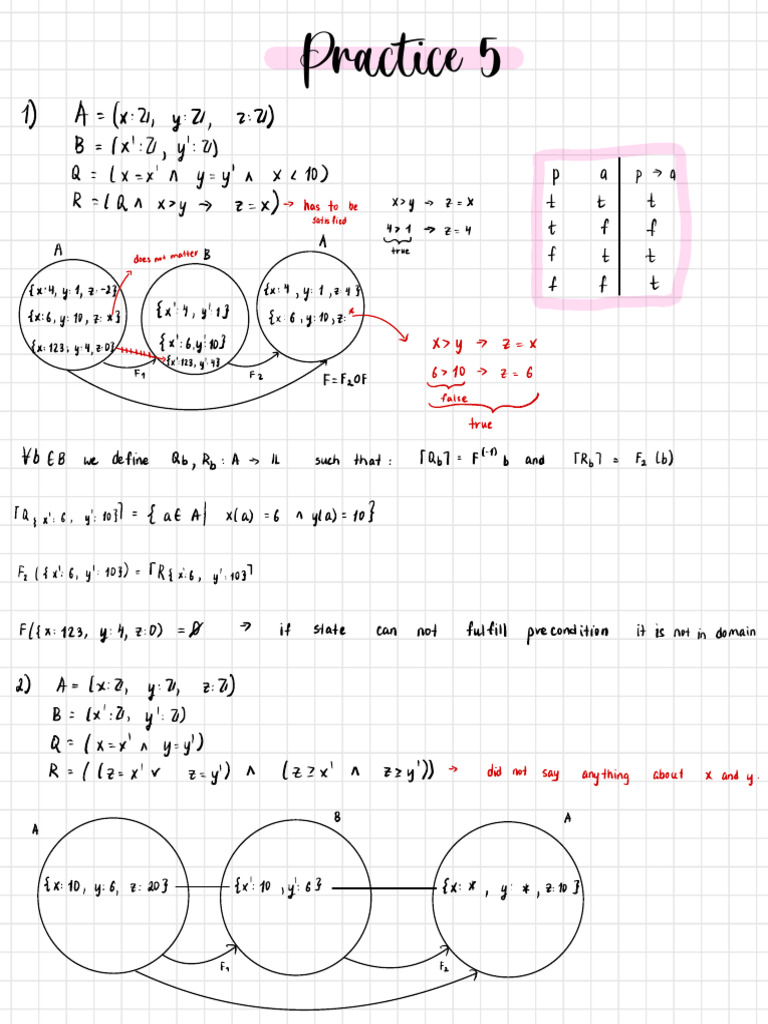 Practice 5
1) A = (x:ℤ, y:ℤ, z:ℤ)
B = (x':ℤ, y':ℤ)
Q = (x=x' ∧ y=y' ∧ x<10)
R = (Q ∧ x>y → z=x) → has to be satisfied
x>y → z=x
4>1 → z=4
true
p a p→a
t t t
t f f
f t t
f f t
A
does not matter
B
A
{x:4, y:1, z:-2}
{x:6, y:10, z:*}
{x:123, y:4, z:0}
{x':4, y':1}
{x':6, y':10}
{x':123, y':4}
{x:4, y:1, z:4}
{x:6, y:10, z:*
F₁
F₂
F=F₂OF
x>y → z=x
6>10 → z=6
false
true
∀b∈B we define Qb, Rb: A → 𝕃 such that: ⌈Qb⌉ = F⁽⁻¹⁾b and ⌈Rb⌉ = F₂(b)
⌈Q{x':6, y':10}⌉ = {a∈A| x(a)=6 ∧ y(a)=10}
F₂({x':6, y':10}) = ⌈R{x':6, y':10}⌉
F({x:123, y:4, z:0) = ∅ → if state can not fulfill precondition it is not in domain
2) A = (x:ℤ, y:ℤ, z:ℤ)
B = (x':ℤ, y':ℤ)
Q = (x=x' ∧ y=y')
R = ((z=x' ∨ z=y') ∧ (z≥x' ∧ z≥y')) → did not say anything about x and y.
A
B
A
{x:10, y:6, z:20}
{x':10, y':6}
{x:*, y:*, z:10}
F₁
F₂